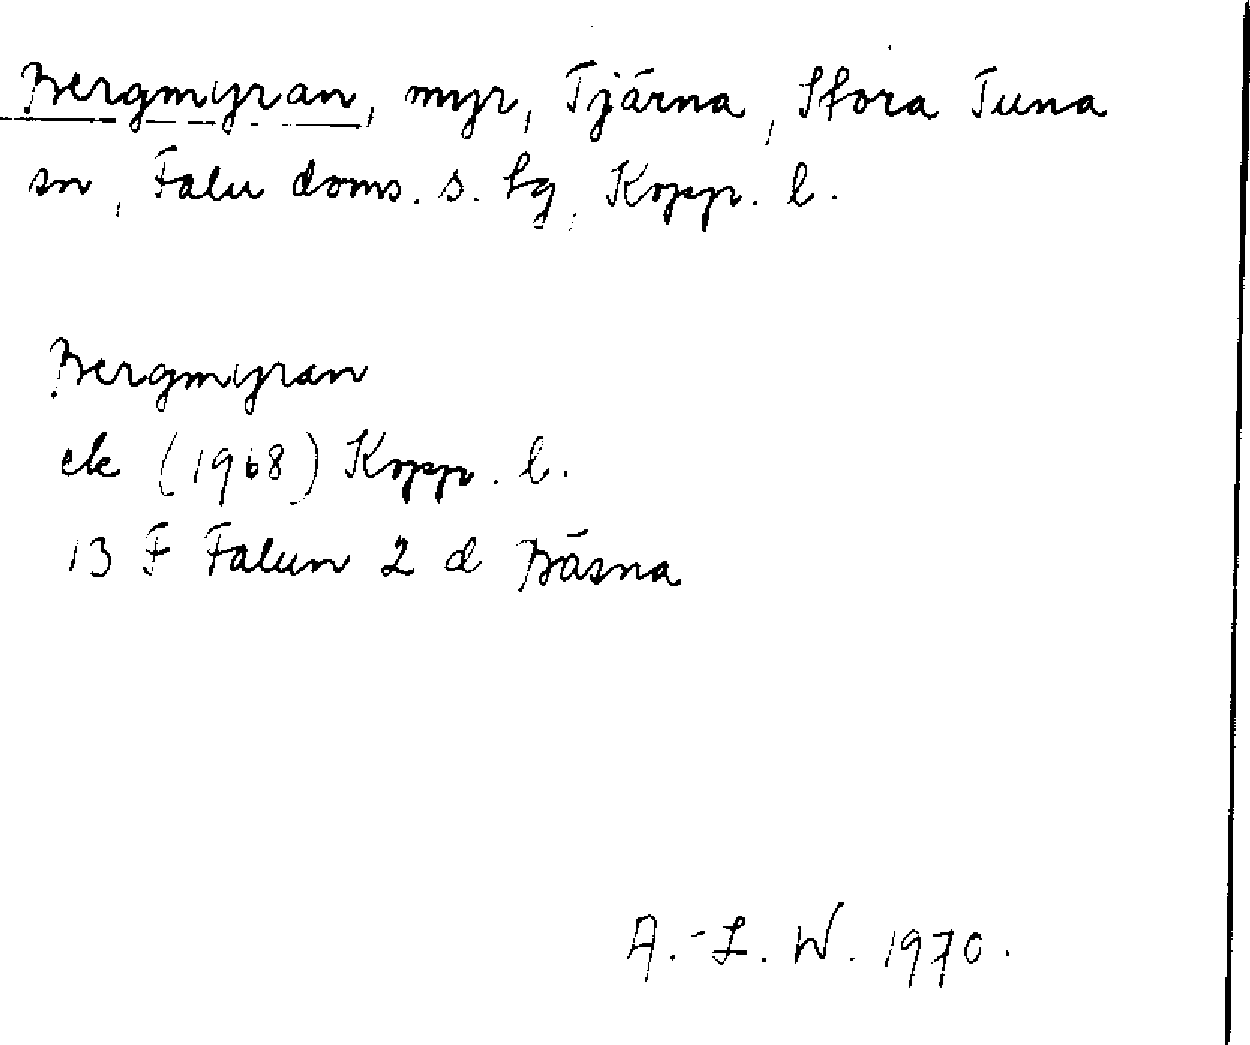 Bergmyran, myr, Tjärna, Stora Tuna
sn, Falu doms. s. tg, Kopp. l.
Bergmyran
ek (1968) Kopp. l.
13 F Falun 2 d Bäsna
A.-L. W. 1970.